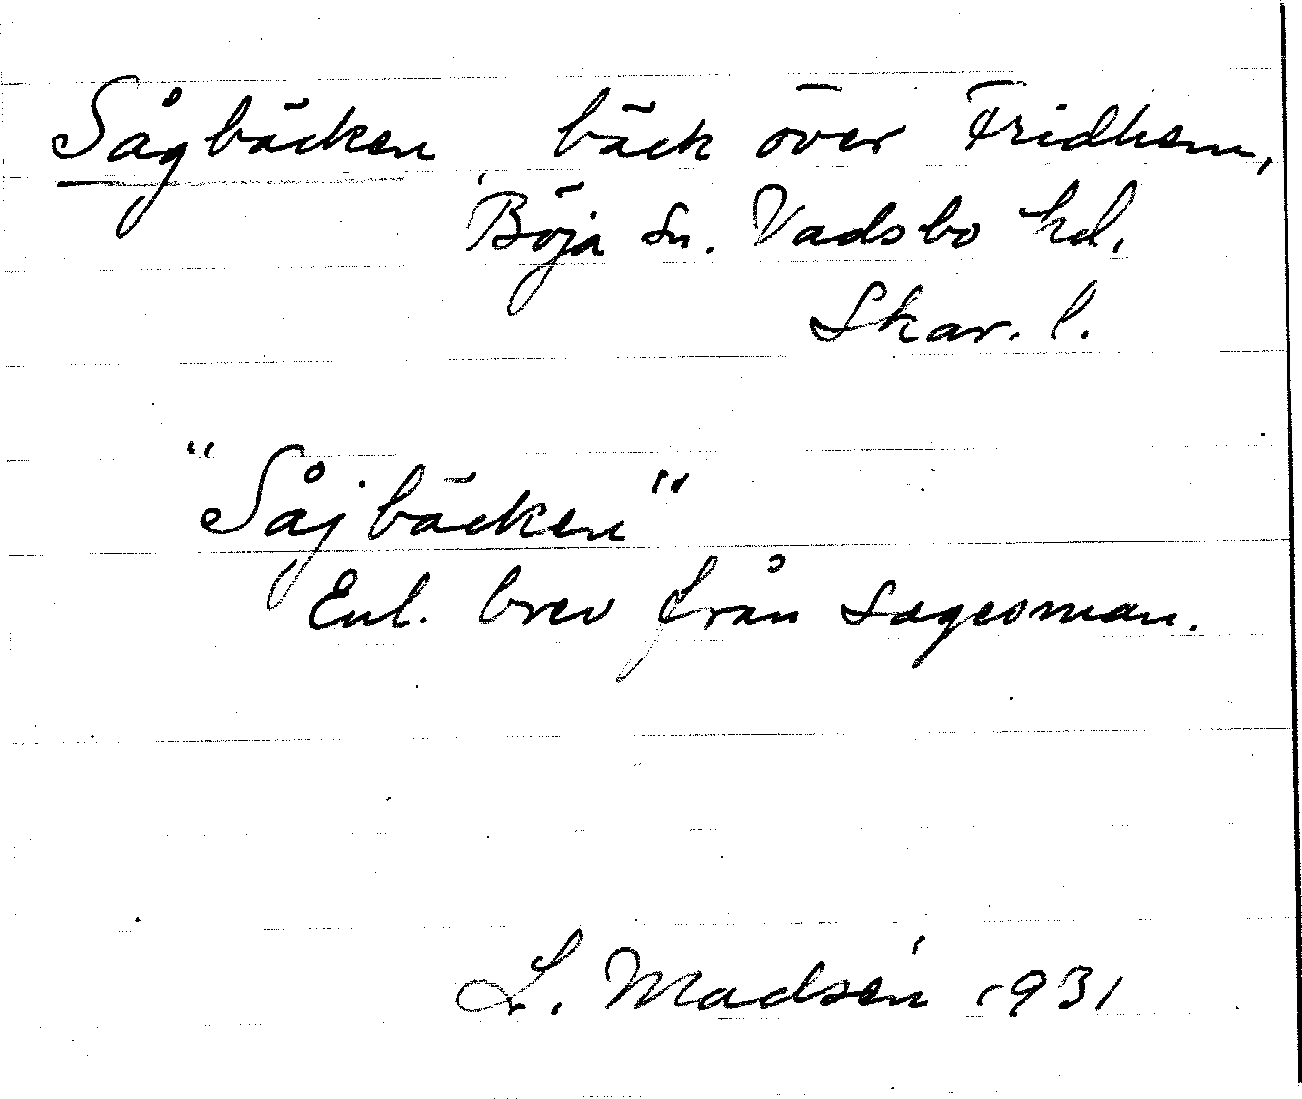 Sågbäcken bäck över Fridhem,
Böja sn. Vadsbo hd.
Skar. l.
"Såjbäcken"
Enl. brev från sagesman.
L. Madsén 1931